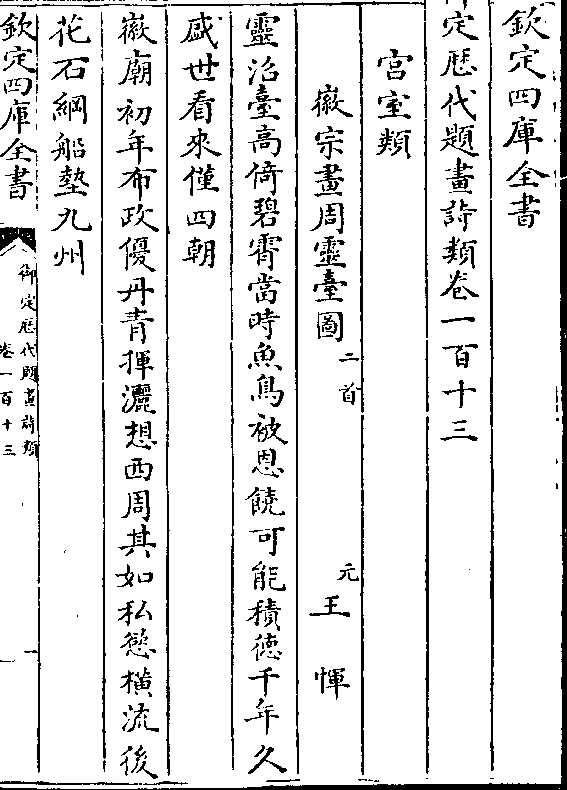 欽定四庫全書
定歴代題畫詩類卷一百十三
宫室類
徽宗畫周靈臺圖二首 元王惲
靈沼臺高倚碧霄當時魚鳥被恩饒可能積德千年久
盛世看來僅四朝
徽廟初年布政優丹青揮灑想西周其如私慾橫流後
花石綱船墊九州
欽定四庫全書
御定歴代題畫詩類
卷一百十三
一